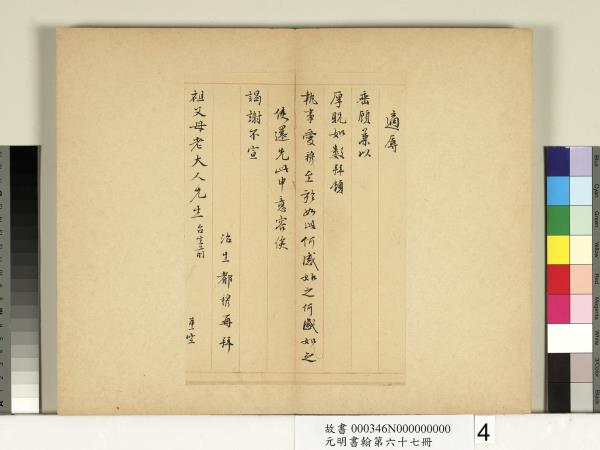 適辱
垂顧兼以
厚貺如數拜領
執事愛稱至於如此何感如之何感如之
使還先此申意容俟
謁謝不宣
祖父母老大人先生台坐前
治生都穆再拜
故書 000346N000000000
元明書翰第六十七冊
4
Blue
Cyan
Green
Yellow
Red
Magenta
White
3/Color
Black